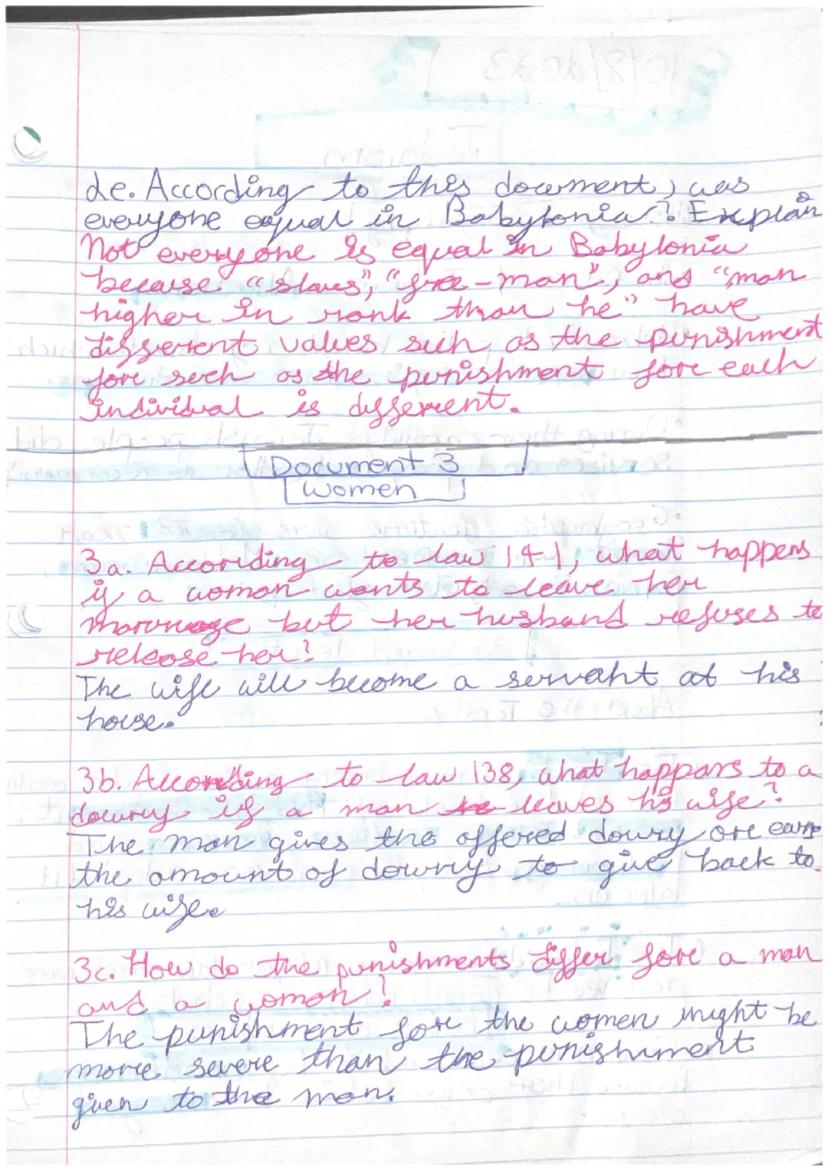 2e. According to this document, was
everyone equal in Babylonia? Explain
Not everyone is equal in Babylonia
because "slaves", "free-man", and "man
higher in rank than he" have
different values such as the punishment
fore such as the punishment fore each
individual is different.
Document 3
Women
3a. According to law 141, what happens
if a woman wants to leave her
marriage but her husband refuses to
release her?
The wife will become a servant at his
house.
3b. According to law 138, what happans to a
dowry if a man leaves his wife?
The man gives the offered dowry ore earn
the amount of dowry to give back to
his wife.
3c. How do the punishments differ fore a man
and a woman?
The punishment for the women might be
more severe than the punishment
given to the man.